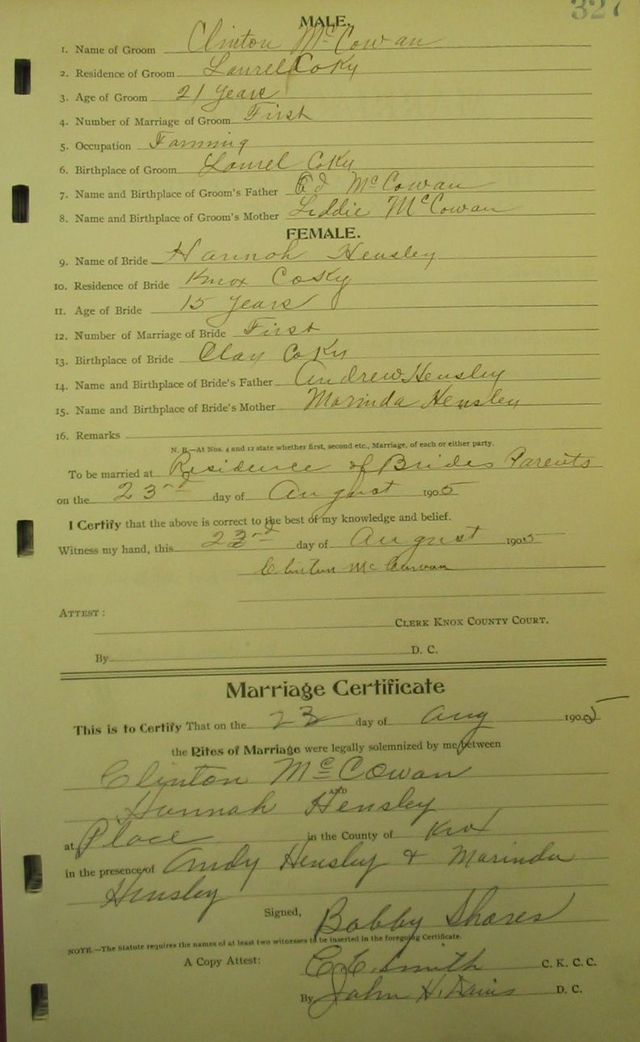 327
MALE.
1. Name of Groom Clinton McCowan
2. Residence of Groom Laurel Co Ky
3. Age of Groom 21 years
4. Number of Marriage of Groom First
5. Occupation Farming
6. Birthplace of Groom Laurel Co Ky
7. Name and Birthplace of Groom's Father Ed McCowan
8. Name and Birthplace of Groom's Mother Liddie McCowan
FEMALE.
9. Name of Bride Hannah Hensley
10. Residence of Bride Knox Co Ky
11. Age of Bride 15 years
12. Number of Marriage of Bride First
13. Birthplace of Bride Clay Co Ky
14. Name and Birthplace of Bride's Father Andrew Hensley
15. Name and Birthplace of Bride's Mother Marinda Hensley
16. Remarks
N. B.—At Nos. 4 and 12 state whether first, second etc., Marriage, of each or either party.
To be married at Residence of Brides Parents
on the 23rd day of August 1905
I Certify that the above is correct to the best of my knowledge and belief.
Witness my hand, this 23rd day of August 1905
Clinton McCowan
ATTEST:
CLERK KNOX COUNTY COURT.
By D. C.
Marriage Certificate
This is to Certify That on the 23 day of Aug 1905
the Rites of Marriage were legally solemnized by me between
Clinton McCowan
AND
Hannah Hensley
at Place in the County of Knox
in the presence of Andy Hensley & Marinda
Hensley
Signed, Bobby Shares
NOTE.—The Statute requires the names of at least two witnesses to be inserted in the foregoing Certificate.
A Copy Attest: C. C. Smith C. K. C. C.
By John H. Davis D. C.